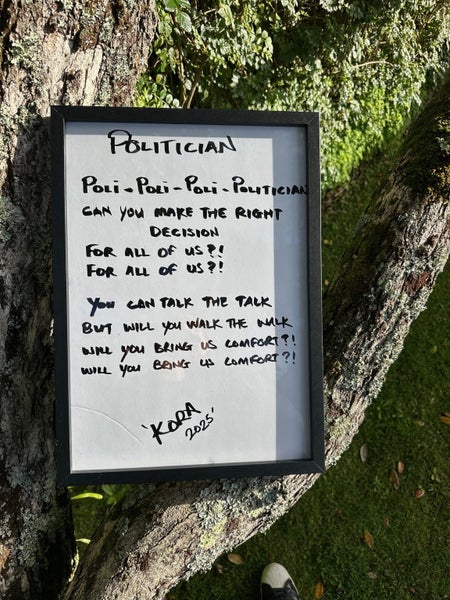 POLITICIAN
POLI-POLI-POLI-POLITICIAN
CAN YOU MAKE THE RIGHT
DECISION
FOR ALL OF US?!
FOR ALL OF US?!
YOU CAN TALK THE TALK
BUT WILL YOU WALK THE WALK
WILL YOU BRING US COMFORT?!
WILL YOU BRING US COMFORT?!
'KORA
2025'